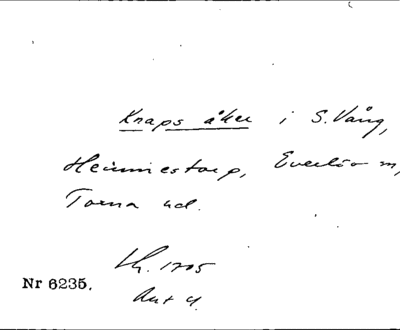 Knaps åker i S. Vång,
Hemmestorp, Everlöv
Torna hd.
1705
Nr 6235.